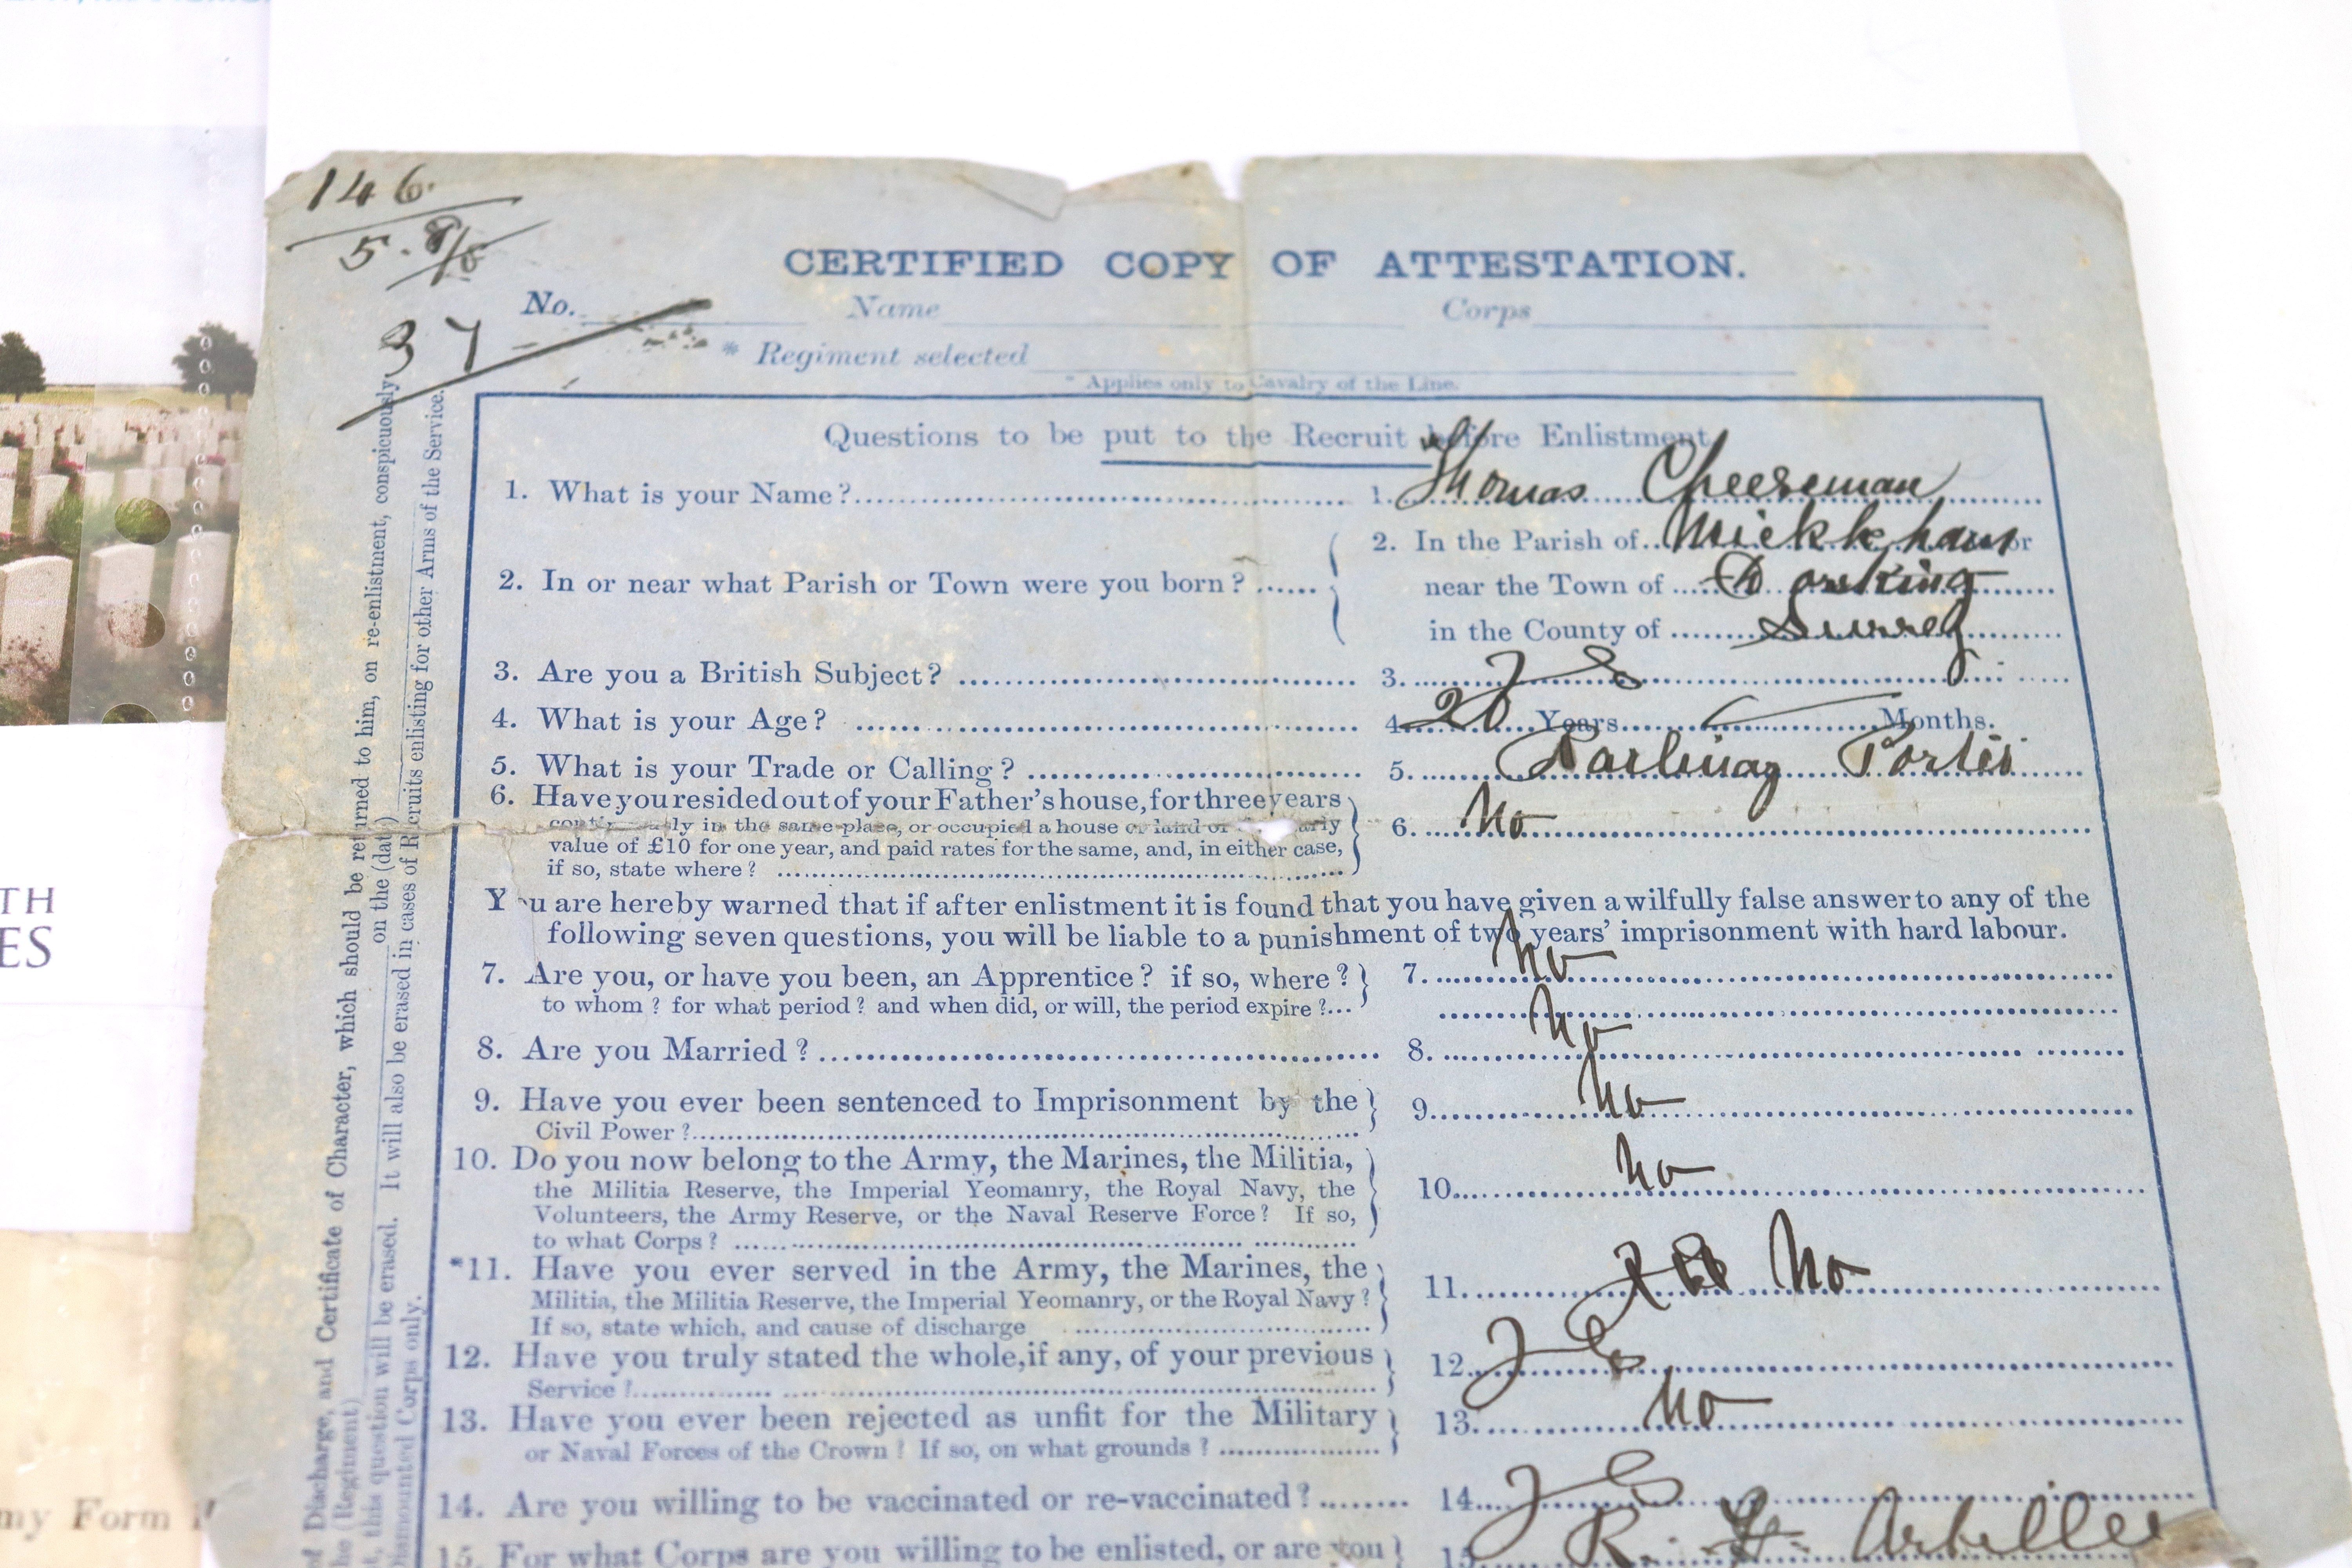 146
5.
37
CERTIFIED COPY OF ATTESTATION.
No. Name Corps
* Regiment selected
* Applies only to Cavalry of the Line.
Questions to be put to the Recruit before Enlistment.
1. What is your Name? 1. Thomas Cheeseman
2. In or near what Parish or Town were you born? 2. In the Parish of Mickleham or
near the Town of Dorking
in the County of Surrey
3. Are you a British Subject? 3. Yes
4. What is your Age? 4. 20 Years Months.
5. What is your Trade or Calling? 5. Railway Porter
6. Have you resided out of your Father's house, for three years
continually in the same place, or occupied a house or land of yearly 6. No
value of £10 for one year, and paid rates for the same, and, in either case,
if so, state where?
You are hereby warned that if after enlistment it is found that you have given a wilfully false answer to any of the
following seven questions, you will be liable to a punishment of two years' imprisonment with hard labour.
7. Are you, or have you been, an Apprentice? if so, where? 7. No
to whom? for what period? and when did, or will, the period expire?...
8. Are you Married? 8. No
9. Have you ever been sentenced to Imprisonment by the 9. No
Civil Power?
10. Do you now belong to the Army, the Marines, the Militia,
the Militia Reserve, the Imperial Yeomanry, the Royal Navy, the 10. No
Volunteers, the Army Reserve, or the Naval Reserve Force? If so,
to what Corps?
*11. Have you ever served in the Army, the Marines, the 11. No
Militia, the Militia Reserve, the Imperial Yeomanry, or the Royal Navy?
If so, state which, and cause of discharge
12. Have you truly stated the whole, if any, of your previous 12. Yes
Service?
13. Have you ever been rejected as unfit for the Military 13. No
or Naval Forces of the Crown? If so, on what grounds?
14. Are you willing to be vaccinated or re-vaccinated? 14. Yes
15. For what Corps are you willing to be enlisted, or are you 15. R. F. Artillery
of Discharge, and Certificate of Character, which should be returned to him, on re-enlistment, conspicuously
(Regiment) on the (date)
this question will be erased. It will also be erased in cases of Recruits enlisting for other Arms of the Service.
Dismounted Corps only.
TH
ES
my Form